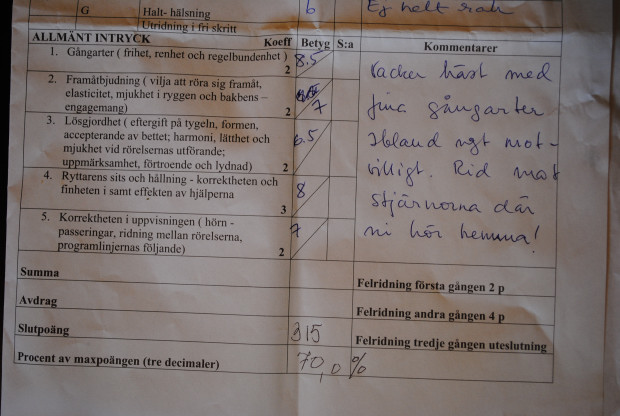 G Halt- hälsning 6 Ej helt rak
Utridning i fri skritt
ALLMÄNT INTRYCK Koeff Betyg S:a Kommentarer
1. Gångarter ( frihet, renhet och regelbundenhet )
2 8.5
2. Framåtbjudning ( vilja att röra sig framåt,
elasticitet, mjukhet i ryggen och bakbens –
engagemang) 2 7
3. Lösgjordhet ( eftergift på tygeln, formen,
accepterande av bettet; harmoni, lätthet och
mjukhet vid rörelsernas utförande;
uppmärksamhet, förtroende och lydnad) 2 6.5
4. Ryttarens sits och hållning - korrektheten och
finheten i samt effekten av hjälperna
3 8
5. Korrektheten i uppvisningen ( hörn -
passeringar, ridning mellan rörelserna,
programlinjernas följande) 2 7
Vacker häst med
fina gångarter
Ibland ngt mot-
villigt. Rid mot
stjärnorna där
ni hör hemma!
Summa Felridning första gången 2 p
Avdrag Felridning andra gången 4 p
Slutpoäng 315 Felridning tredje gången uteslutning
Procent av maxpoängen (tre decimaler) 70,0 %